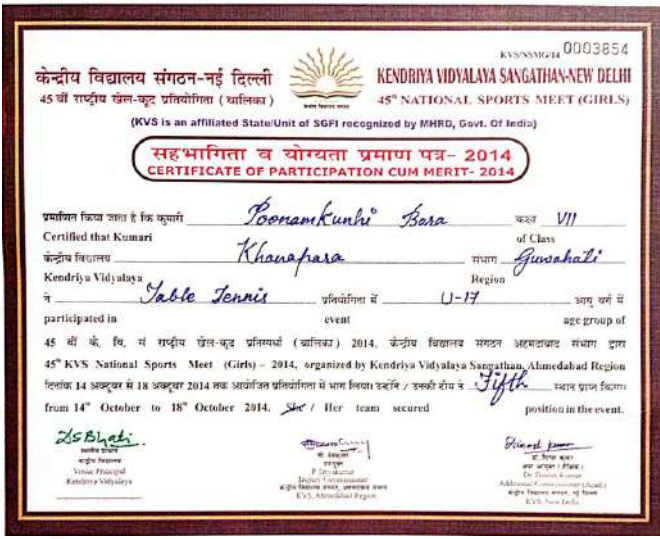 KVS/NSMG/14 0003854
केन्द्रीय विद्यालय संगठन-नई दिल्ली
KENDRIYA VIDYALAYA SANGATHAN-NEW DELHI
45 वीं राष्ट्रीय खेल-कूद प्रतियोगिता (बालिका)
45th NATIONAL SPORTS MEET (GIRLS)
(KVS is an affiliated State/Unit of SGFI recognized by MHRD, Govt. Of India)
सहभागिता व योग्यता प्रमाण पत्र- 2014
CERTIFICATE OF PARTICIPATION CUM MERIT- 2014
प्रमाणित किया जाता है कि कुमारी Poonamkunhi Bora कक्षा VII
Certified that Kumari of Class
केन्द्रीय विद्यालय Khanapara संभाग Guwahati
Kendriya Vidyalaya Region
ने Table Tennis प्रतियोगिता में U-17 आयु वर्ग में
participated in event age group of
45 वीं के. वि. सं राष्ट्रीय खेल-कूद प्रतिस्पर्धा (बालिका) 2014, केन्द्रीय विद्यालय संगठन अहमदाबाद संभाग द्वारा
45th KVS National Sports Meet (Girls) – 2014, organized by Kendriya Vidyalaya Sangathan, Ahmedabad Region
दिनांक 14 अक्टूबर से 18 अक्टूबर 2014 तक आयोजित प्रतियोगिता में भाग लिया। उन्होंने / उनकी टीम ने Fifth स्थान प्राप्त किया।
from 14th October to 18th October 2014. She / Her team secured position in the event.
DSBhati. Dinesh Kumar
Venue Principal
Kendriya Vidyalaya
P. Devakumar
Deputy Commissioner
KVS, Ahmedabad Region
Dr. Dinesh Kumar
Additional Commissioner (Acad.)
KVS, New Delhi